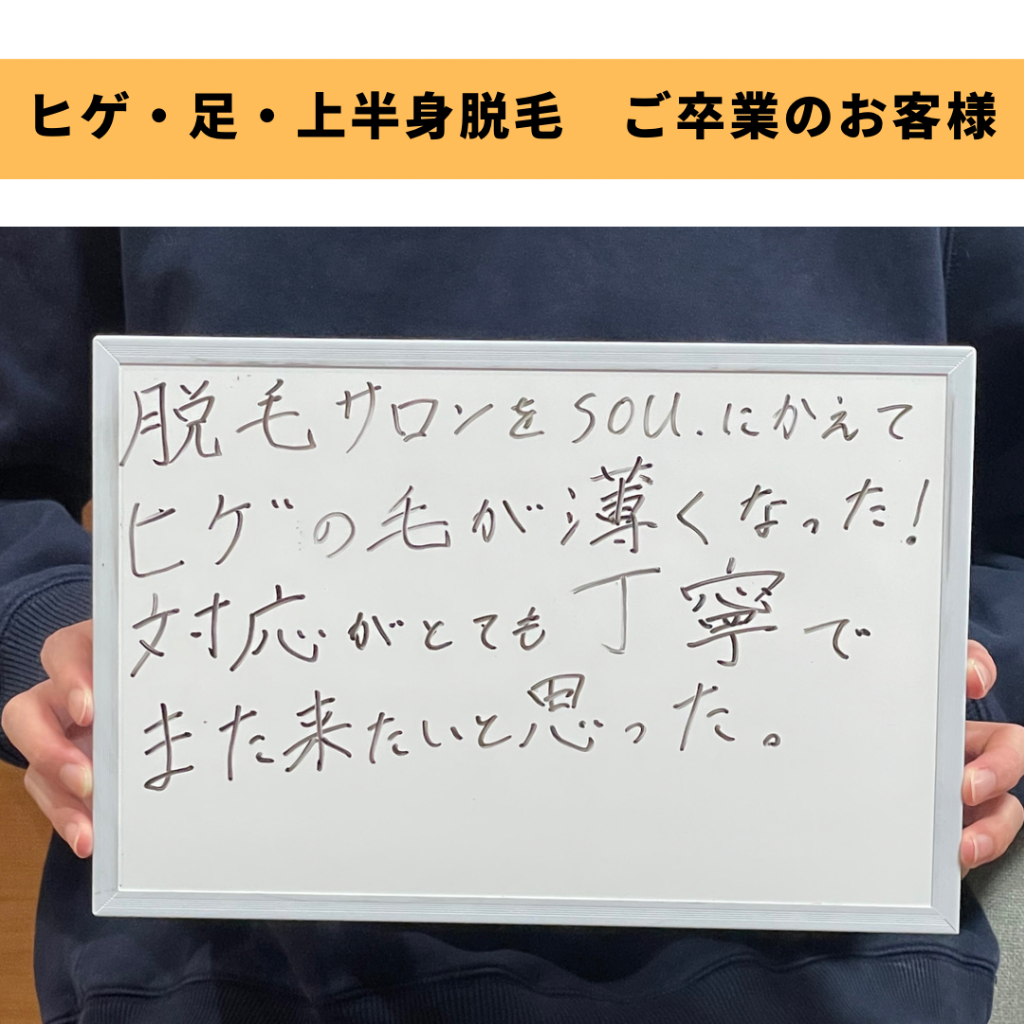 ヒゲ・足・上半身脱毛　ご卒業のお客様
脱毛サロンをSOU.にかえて
ヒゲの毛が薄くなった!
対応がとても丁寧で
また来たいと思った。